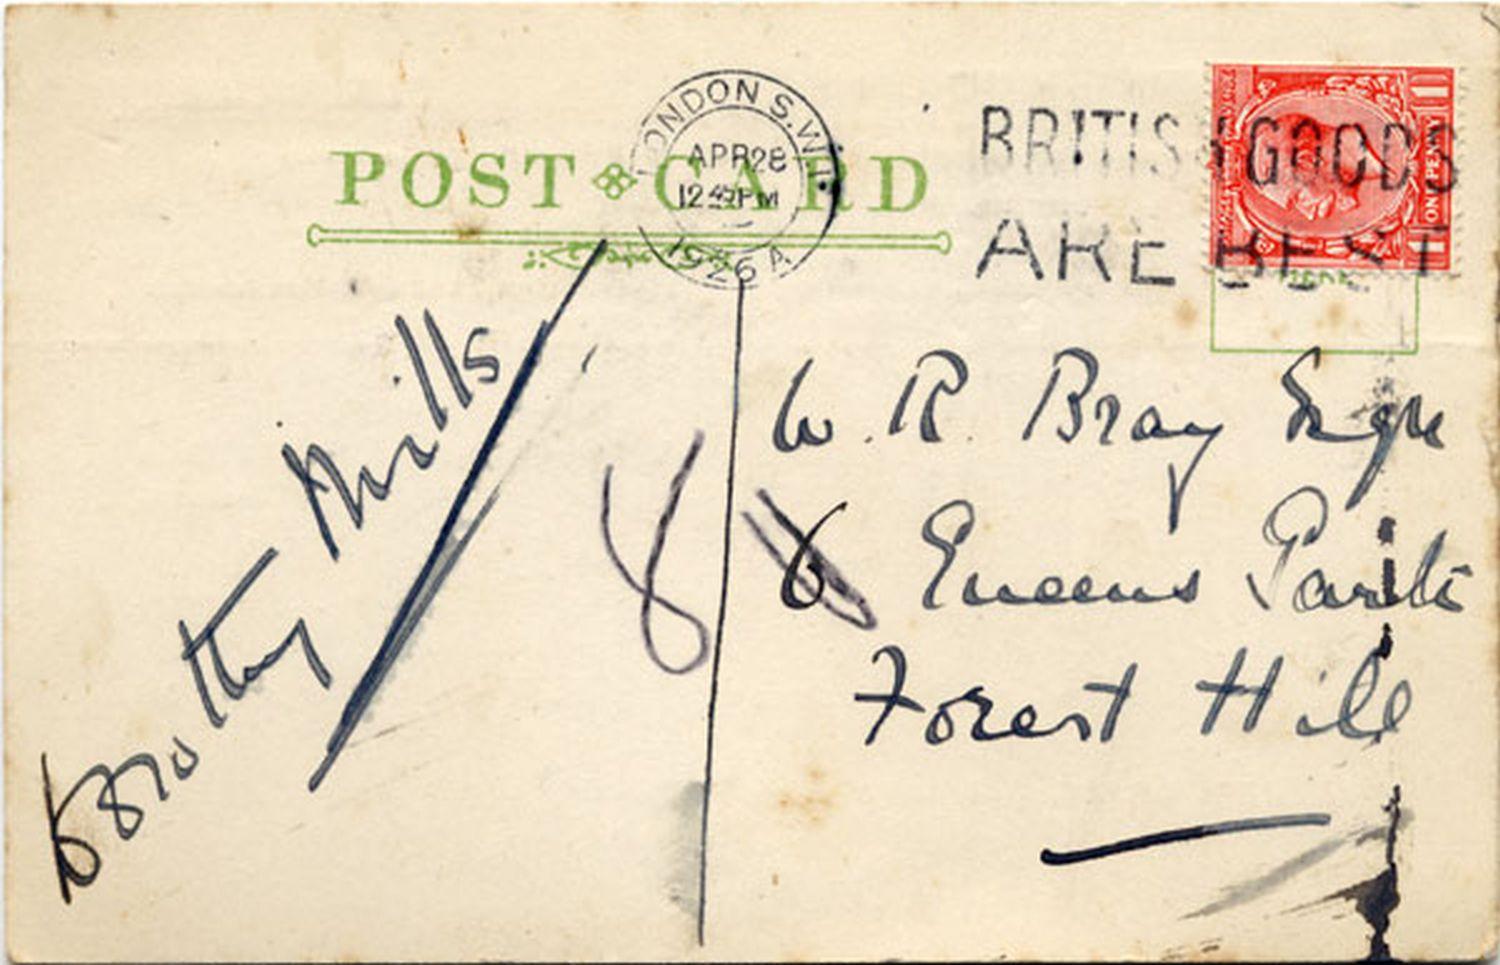 POST CARD
LONDON S.W.1.
APR 28
12 PM
1926 A
BRITISH GOODS
ARE BEST
ONE PENNY
Dorothy Mills
W. R. Bray Esqre
8
6 Queens Parade
Forest Hill